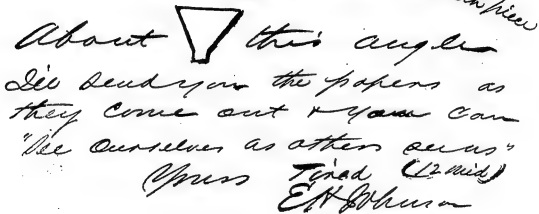 piece
About this angle
I'll send you the papers as
they come out & you can
"See Ourselves as others see us"
Yours Tired (12 mid)
E H Johnson